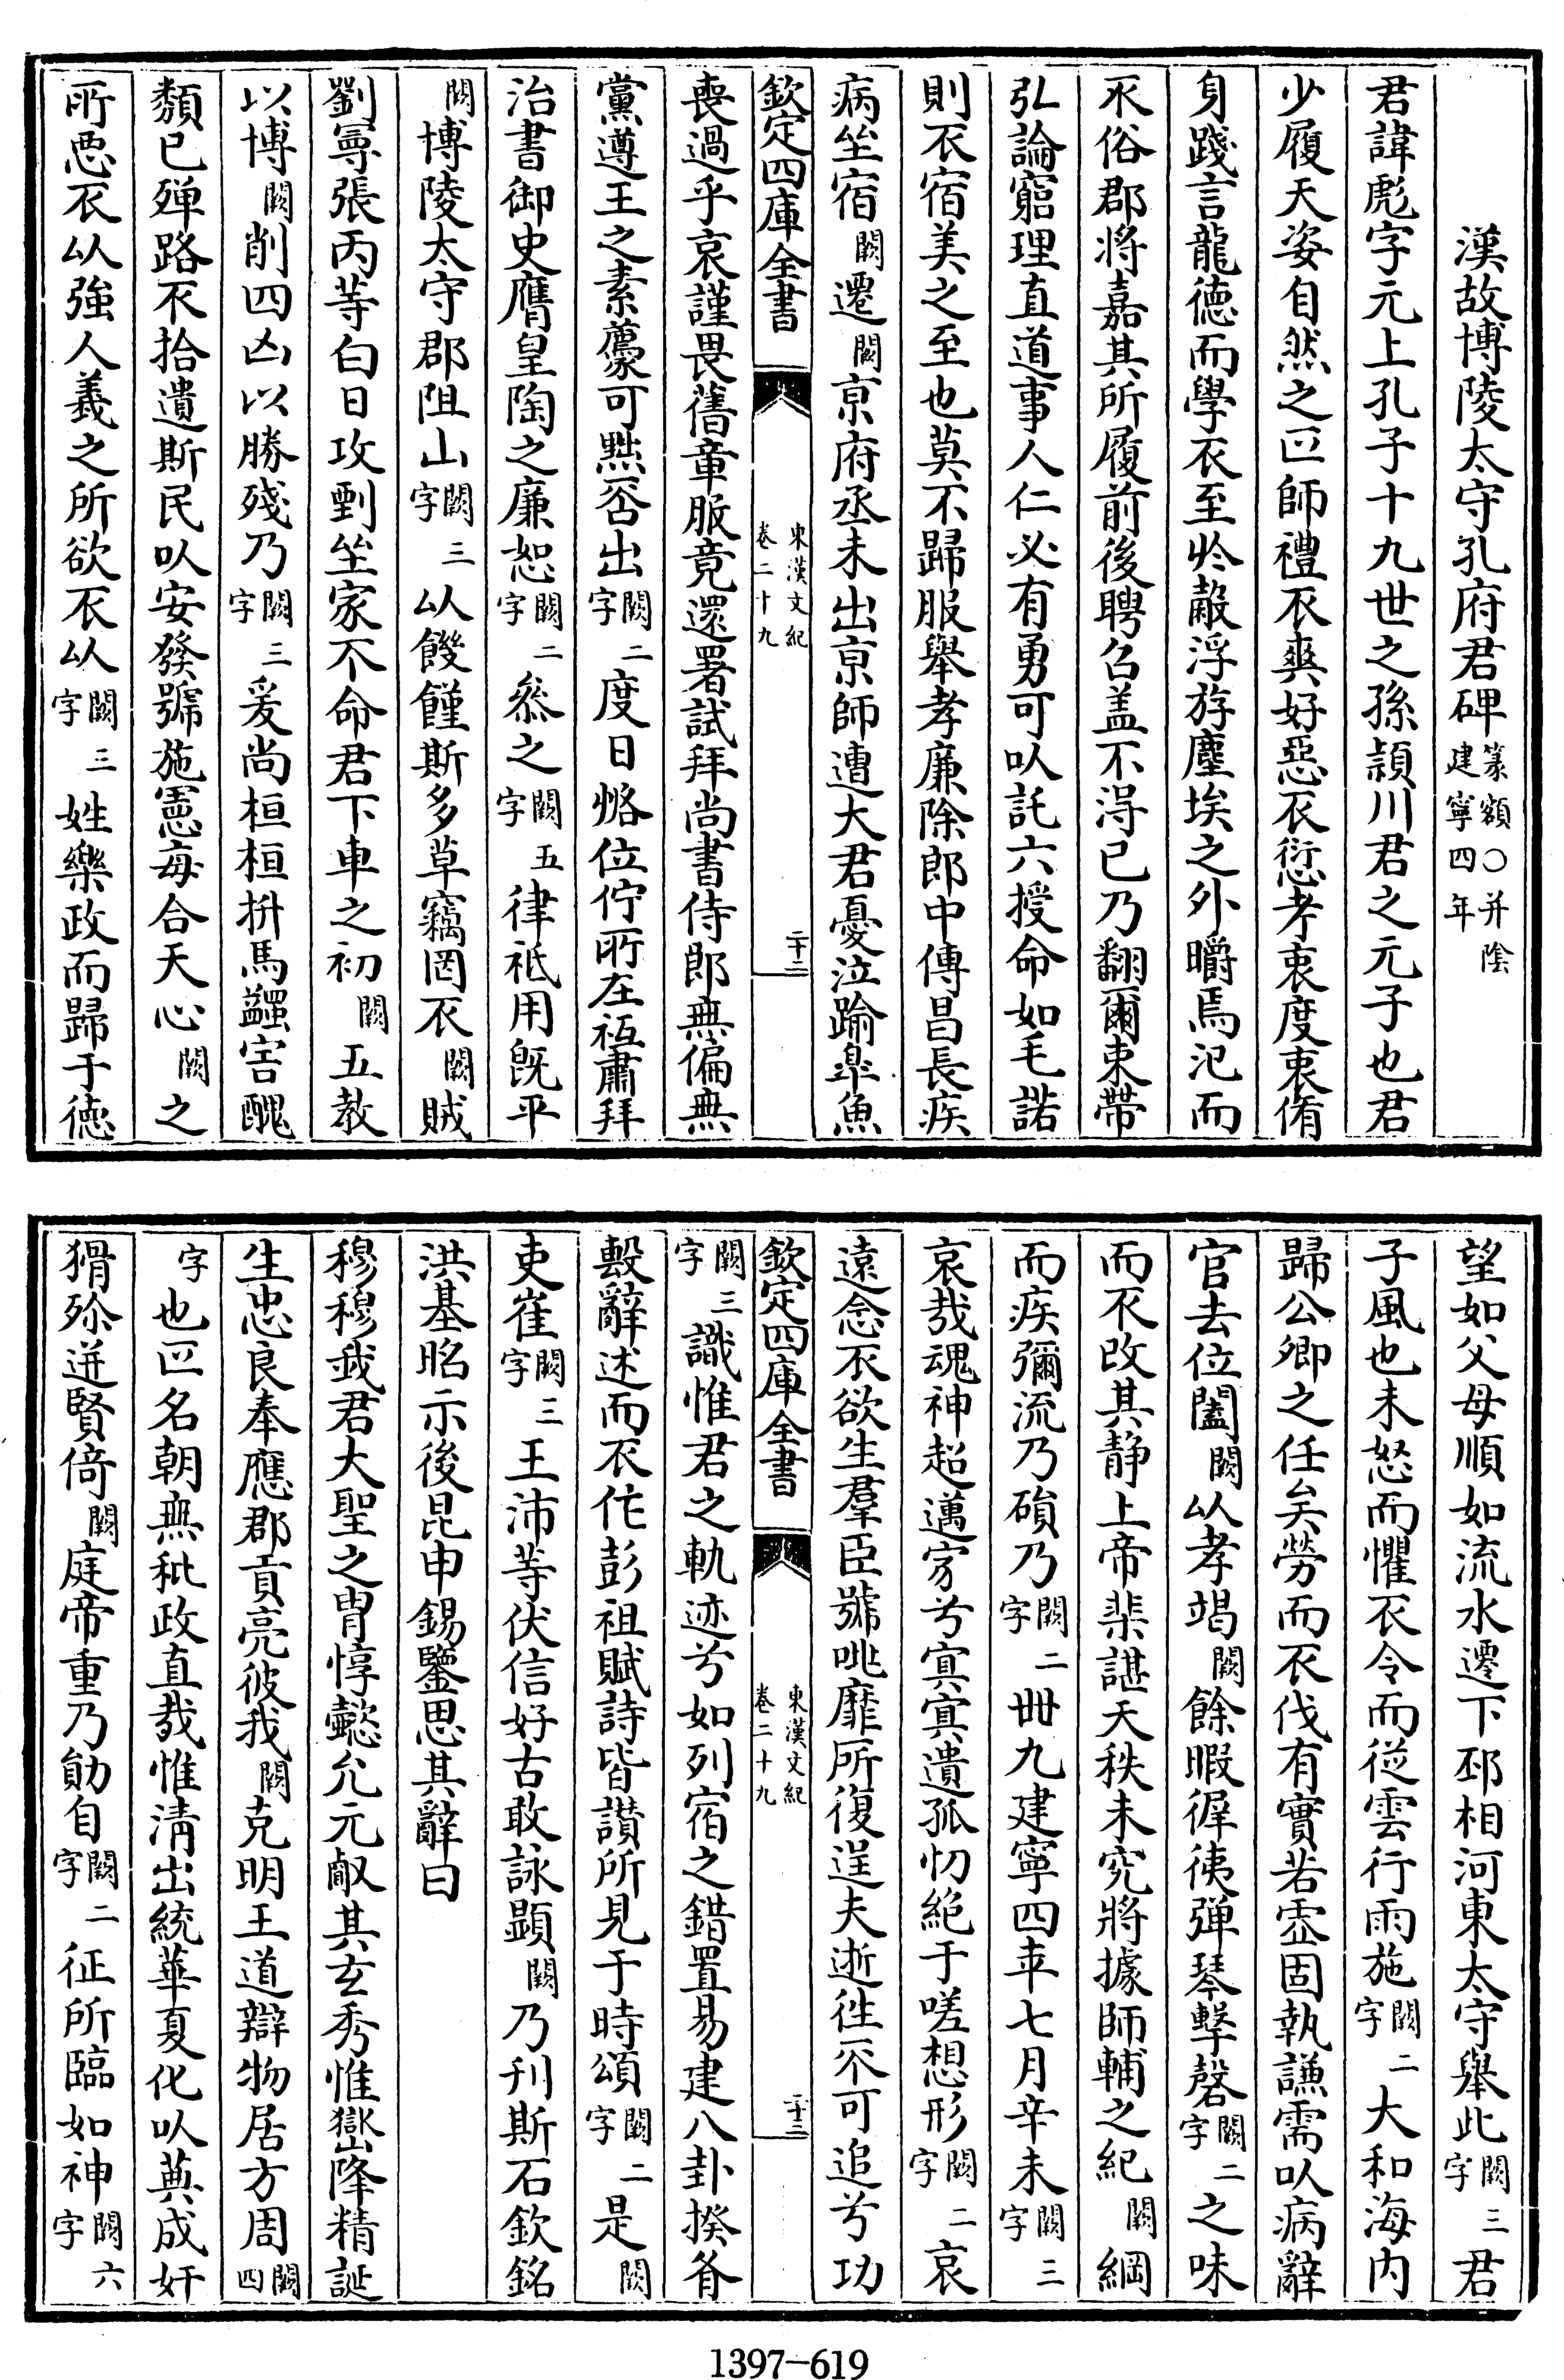 漢故博陵太守孔府君碑篆額○并陰建寧四年
君諱彪字元上孔子十九世之孫潁川君之元子也君
少履天姿自然之正師禮不爽好惡不愆孝衷度衷脩
身踐言龍徳而學不至於蔽浮斿塵埃之外皭焉氾而
不俗郡将嘉其所履前後聘召盖不淂已乃翻爾束帶
弘論窮理直道事人仁必有勇可㠯託六授命如毛諾
則不宿美之至也莫不歸服舉孝廉除郎中傅昌長疾
病㘴宿闕遷闕京府丞未出京師遭大君憂泣踰皐魚
欽定四庫全書
東漢文紀卷二十九
二十二
喪過乎哀謹畏舊章服竟還署試拜尚書侍郎無偏無
黨遵王之素蘪可黙否出闕二字度日恪位佇所在祗肅拜
治書御史膺皇陶之廉恕闕二字叅之闕五字律祗用既平
闕博陵太守郡阻山闕三字以饑饉斯多草竊罔不闕賊
劉㝷張丙等白日攻剽坐家不命君下車之初闕五教
以博闕削四凶以勝殘乃闕三字爰尚桓桓拚馬蠲害醜
類已殫路不拾遺斯民㠯安發號施憲每合天心闕之
所惡不以強人義之所欲不以闕三字姓樂政而歸于徳
望如父母順如流水遷下邳相河東太守舉此闕三字君
子風也未怒而懼不令而從雲行雨施闕二字大和海内
歸公卿之任矣勞而不伐有實若虚固執謙需㠯病辭
官去位闔闕以孝竭闕餘暇徲徚彈琴擊磬闕二字之味
而不改其静上帝棐諶天秩未究將據師輔之紀闕綱
而疾彌流乃磒乃闕二字卌九建寧四年七月辛未闕三字
哀哉魂神超邁穸兮㝠㝠遺孤忉絶于嗟想形闕二字哀
遠念不欲生羣臣號咷靡所復逞夫逝徃不可追兮功
欽定四庫全書
東漢文紀卷二十九
二十三
闕三字識惟君之軌迹兮如列宿之錯置易建八卦揆肴
毄辭述而不作彭祖賦詩皆讃所見于時頌闕二字是闕
吏崔闕三字王沛等伏信好古敢詠顯闕乃刋斯石欽銘
洪基昭示後昆申錫鑒思其辭曰
穆穆我君大聖之胄惇懿允元叡其玄秀惟嶽降精誕
生忠良奉應郡貢亮彼我闕克明王道辯物居方周闕四
字也正名朝無秕政直哉惟清出統華夏化㠯典成奸
猾殄迸賢倚闕庭帝重乃勛自闕二字征所臨如神闕六字
1397-619